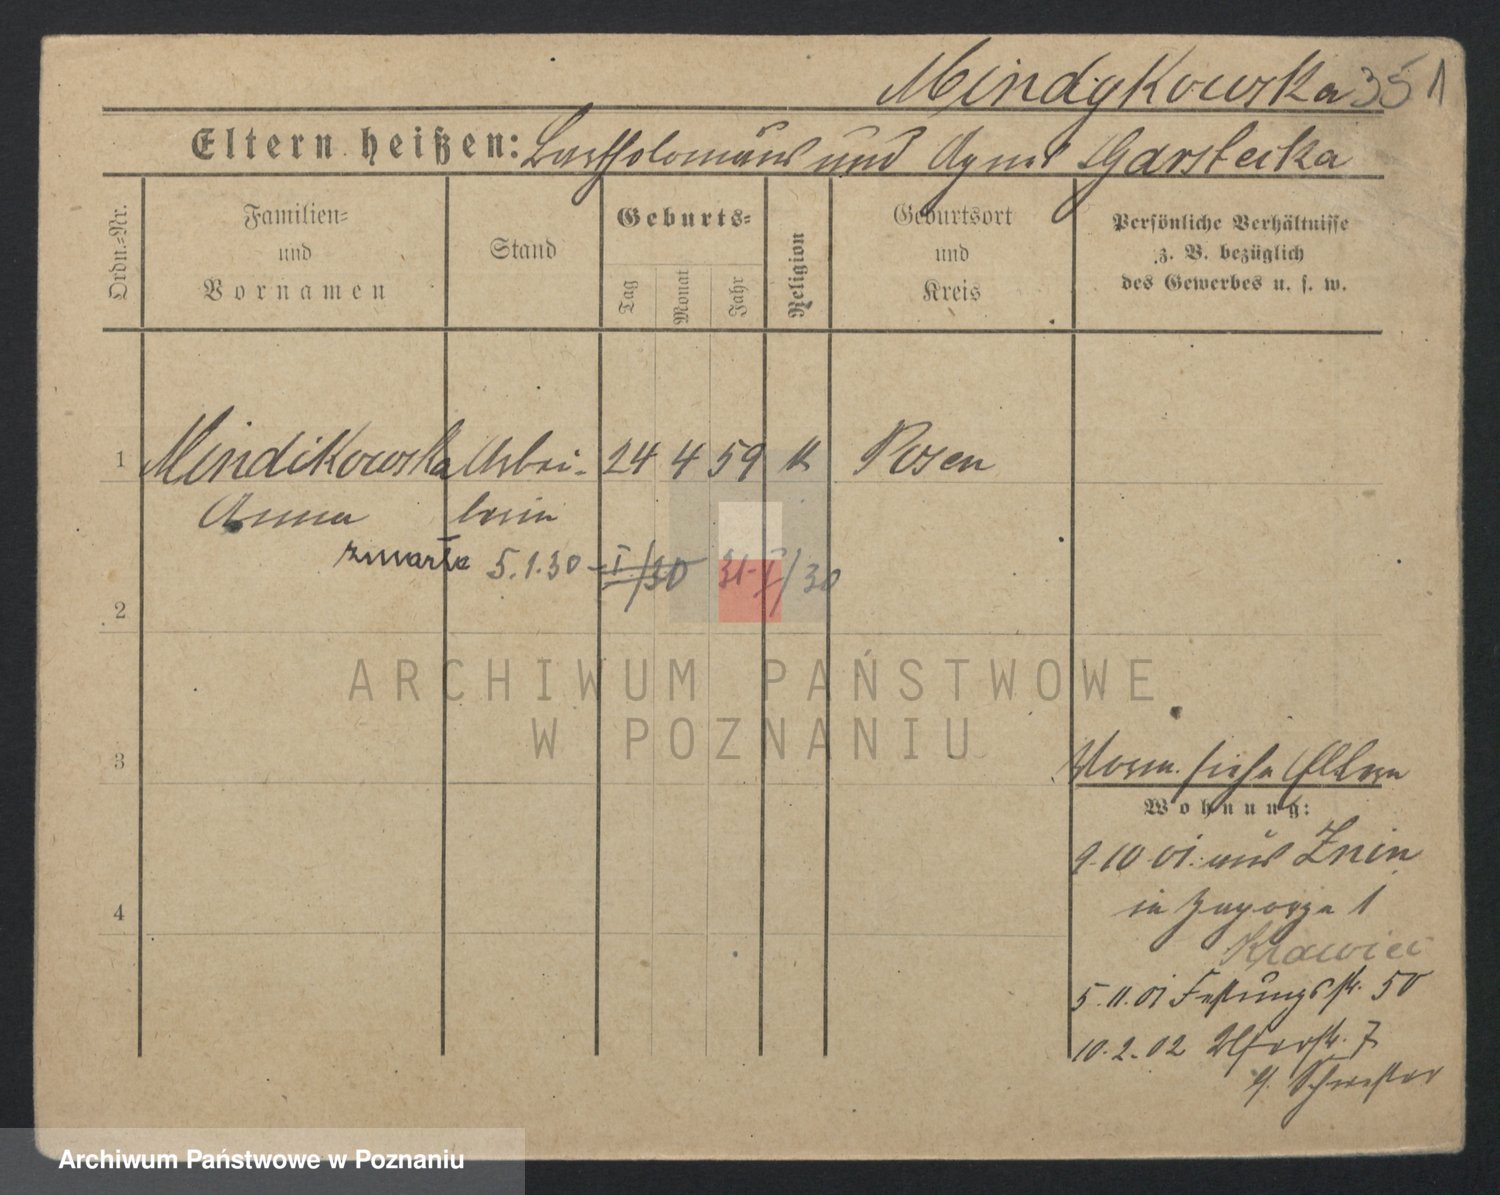 Mindykowska 351
Eltern heißen: Bartholomäus und Agnes Garstecka
Ordn.=Nr.
Familien=
und
Vornamen
Stand
Geburts=
Tag
Monat
Jahr
Religion
Geburtsort
und
Kreis
Persönliche Verhältnisse
z. B. bezüglich
des Gewerbes u. s. w.
1 Mindikowska Arbei- 24 4 59 k Posen
Anna terin
zmarła 5.1.30 I/30 31-I/30
2
ARCHIWUM PAŃSTWOWE
W POZNANIU
3
Vorm. siehe Eltern
Wohnung:
9.10 01. aus Znin
in Zagorze 1
4
Krawiec
5.11.01 Festungsstr. 50
10.2.02 Uferstr. 7
b. Schwester
Archiwum Państwowe w Poznaniu